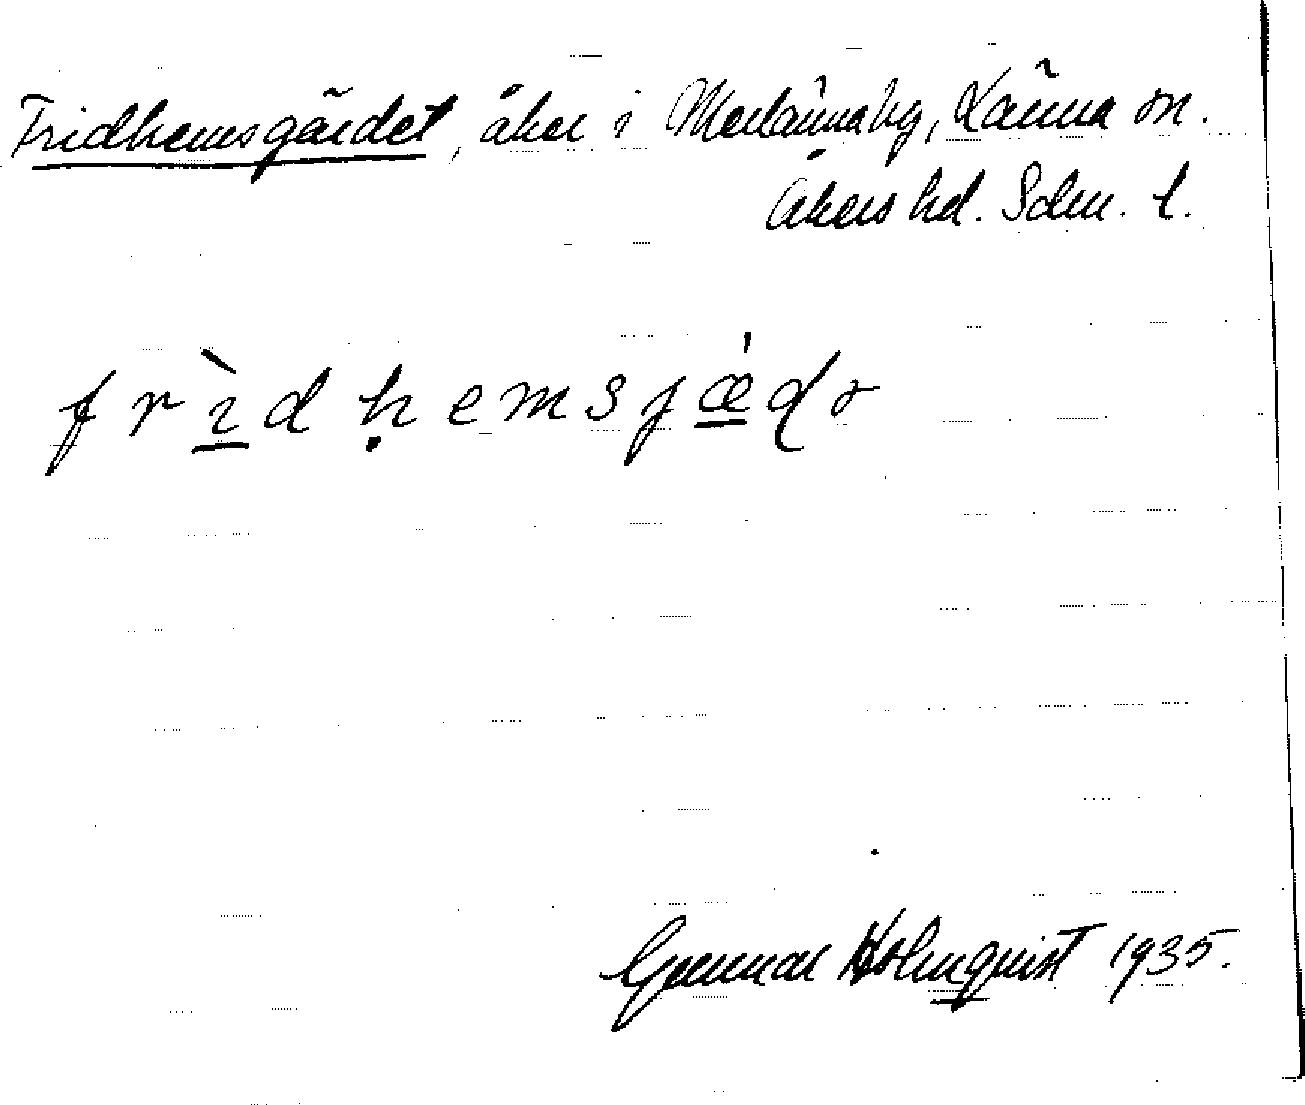 Fridhemsgärdet, åker i Merlännaby, Länna sn.
Åkers hd. Sdm. l.
frìdḥemsjǽdə
Gunnar Holmquist 1935.